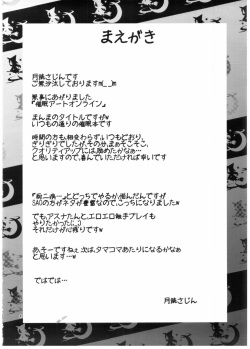 まえがき
月協さじんです
ご無沙汰しておりますm(__)m
無事にあがりました
『催眠アートオンライン』
まんまのタイトルですがw
いつもの通りの催眠本です
時間の方も、相変わらず、いつもどおり、
ぎりぎりでしたが、その分、まぁそこそこ、
クオリティアップには、努めたかなぁ…
と思いますので、喜んでいただければ幸いです
どっちでやるか、悩んだんですが
SAOの方がネタが豊富なので、こっちになりました
でもアスナたんと、エロエロ触手プレイも
やりたかった(;_;)
それだけが心残りですw
あ、そーですねぇ 次は、タマコマあたりになるかなぁ
と思います…w
ではでは…